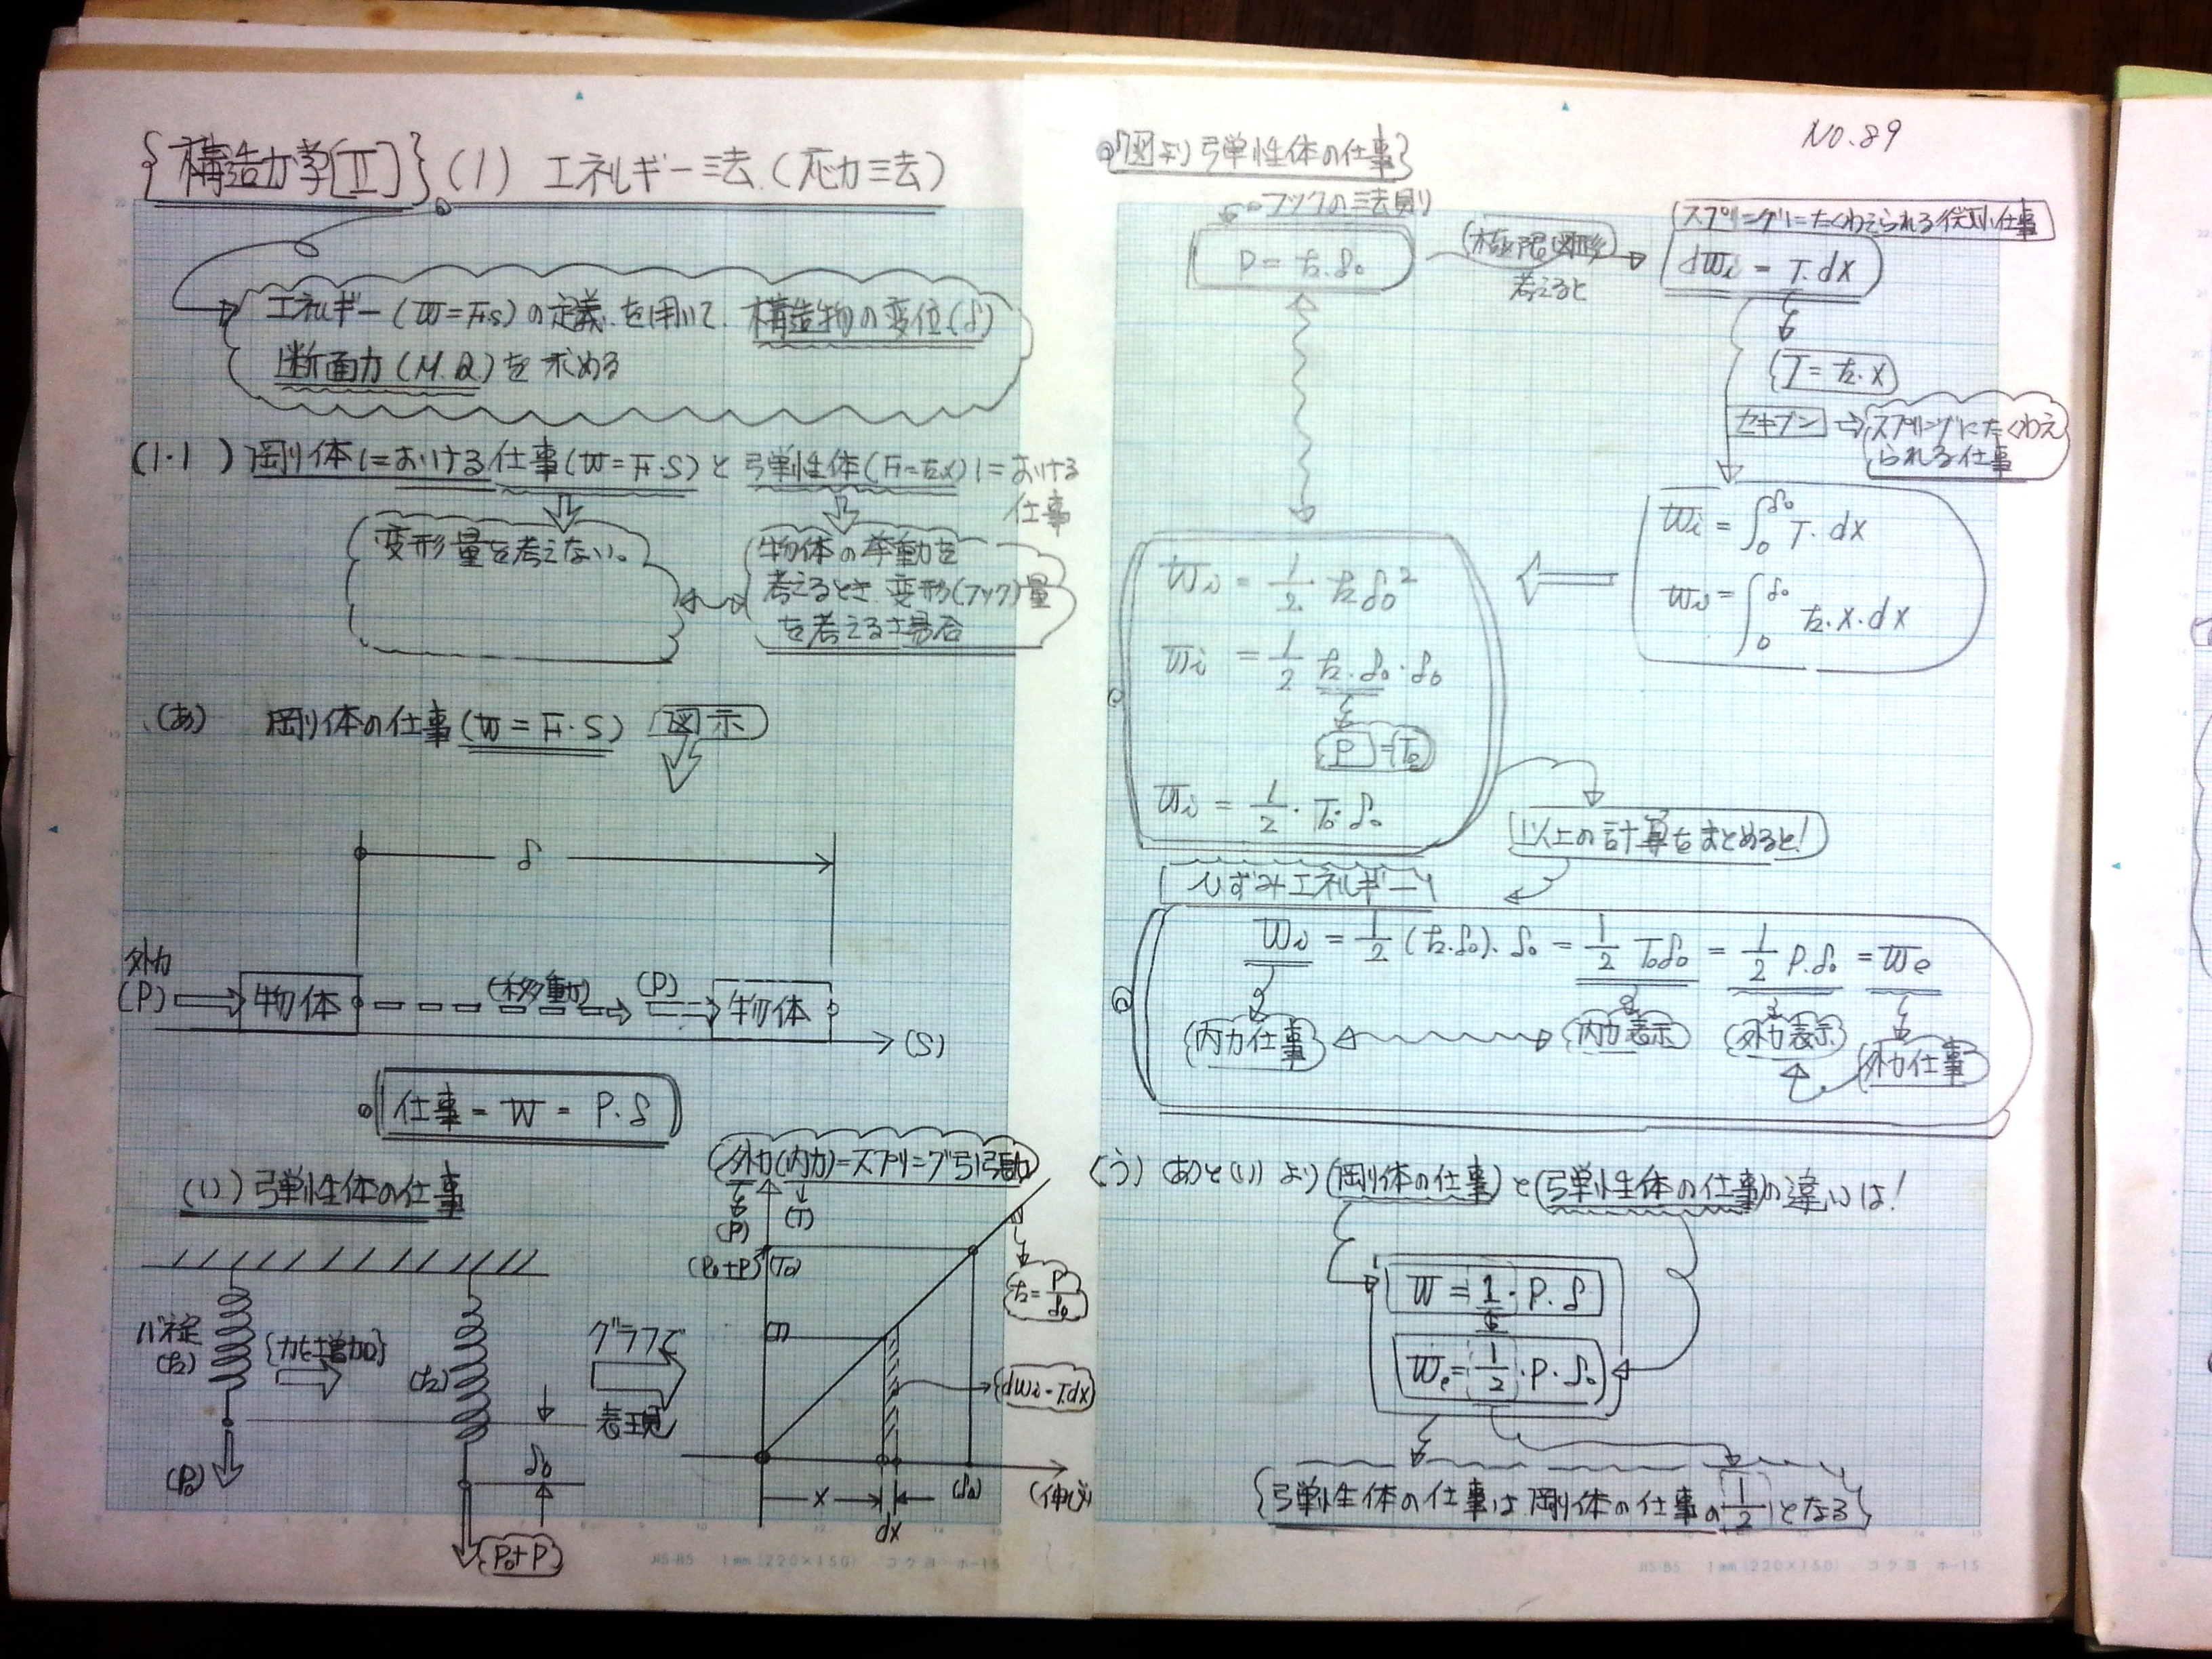 {構造力学[Ⅱ]}(1) エネルギー法(応力法)
エネルギー(W=F.S)の定義を用いて、構造物の変位(δ)
断面力(M.Q.)を求める
(1.1) 剛体における仕事(W=F.S)と弾性体(F=kx)における
仕事
変形量を考えない。
物体の挙動を
考えるとき変形(フック)量
を考える場合
(あ) 剛体の仕事(W=F.S) 図示
δ
外力
(P)
物体
(移動)
(P)
物体
(S)
仕事=W=P.δ
(い)弾性体の仕事
バネ定
(k)
{力を増加}
(k)
(P₀)
δ₀
(P₀+P)
グラフで
表現
外力(内力)=スプリング引張力
(P)
(T)
(P₀+P)
(T₀)
k=P/δ₀
dWi=T.dx
x
dx
(δ₀)
(伸び)
JIS-B5 1mm(220×150) コクヨ ホ-15
NO.89
図より弾性体の仕事
フックの法則
P=k.δ₀
(極限図形)
考えると
スプリングにたくわえられる仮想仕事
dWi=T.dx
T=k.x
セキブン
スプリングにたくわえ
られる仕事
Wi=∫₀^δ₀ T.dx
Wi=∫₀^δ₀ k.x.dx
Wi=1/2 kδ₀²
Wi=1/2 k.δ₀.δ₀
P=T₀
Wi=1/2.T₀.δ₀
以上の計算をまとめると!
ひずみエネルギー
Wi=1/2(k.δ₀).δ₀=1/2 T₀δ₀=1/2 P.δ₀=We
内力仕事
内力表示
外力表示
外力仕事
(う)(あ)と(い)より(剛体の仕事)と(弾性体の仕事)の違いは!
W=1/1.P.δ
We=1/2.P.δ₀
{弾性体の仕事は剛体の仕事の1/2となる}
JIS-B5 1mm(220×150) コクヨ ホ-15